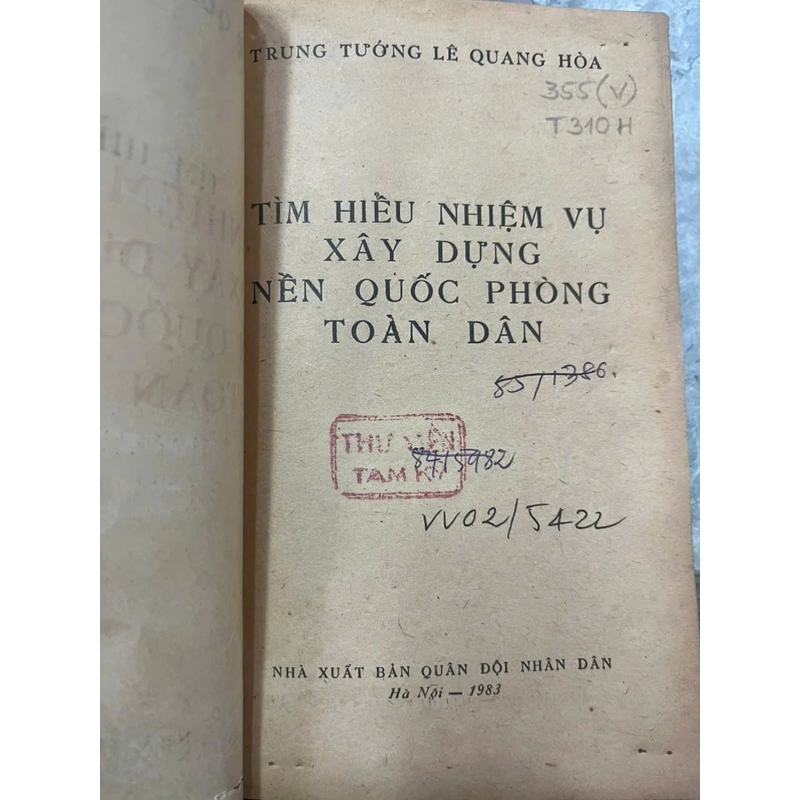 TRUNG TƯỚNG LÊ QUANG HÒA
355(V)
T310H
TÌM HIỂU NHIỆM VỤ
XÂY DỰNG
NỀN QUỐC PHÒNG
TOÀN DÂN
85/1386.
THƯ VIỆN
TAM KỲ
84/5982
VV02/5422
NHÀ XUẤT BẢN QUÂN ĐỘI NHÂN DÂN
Hà Nội — 1983